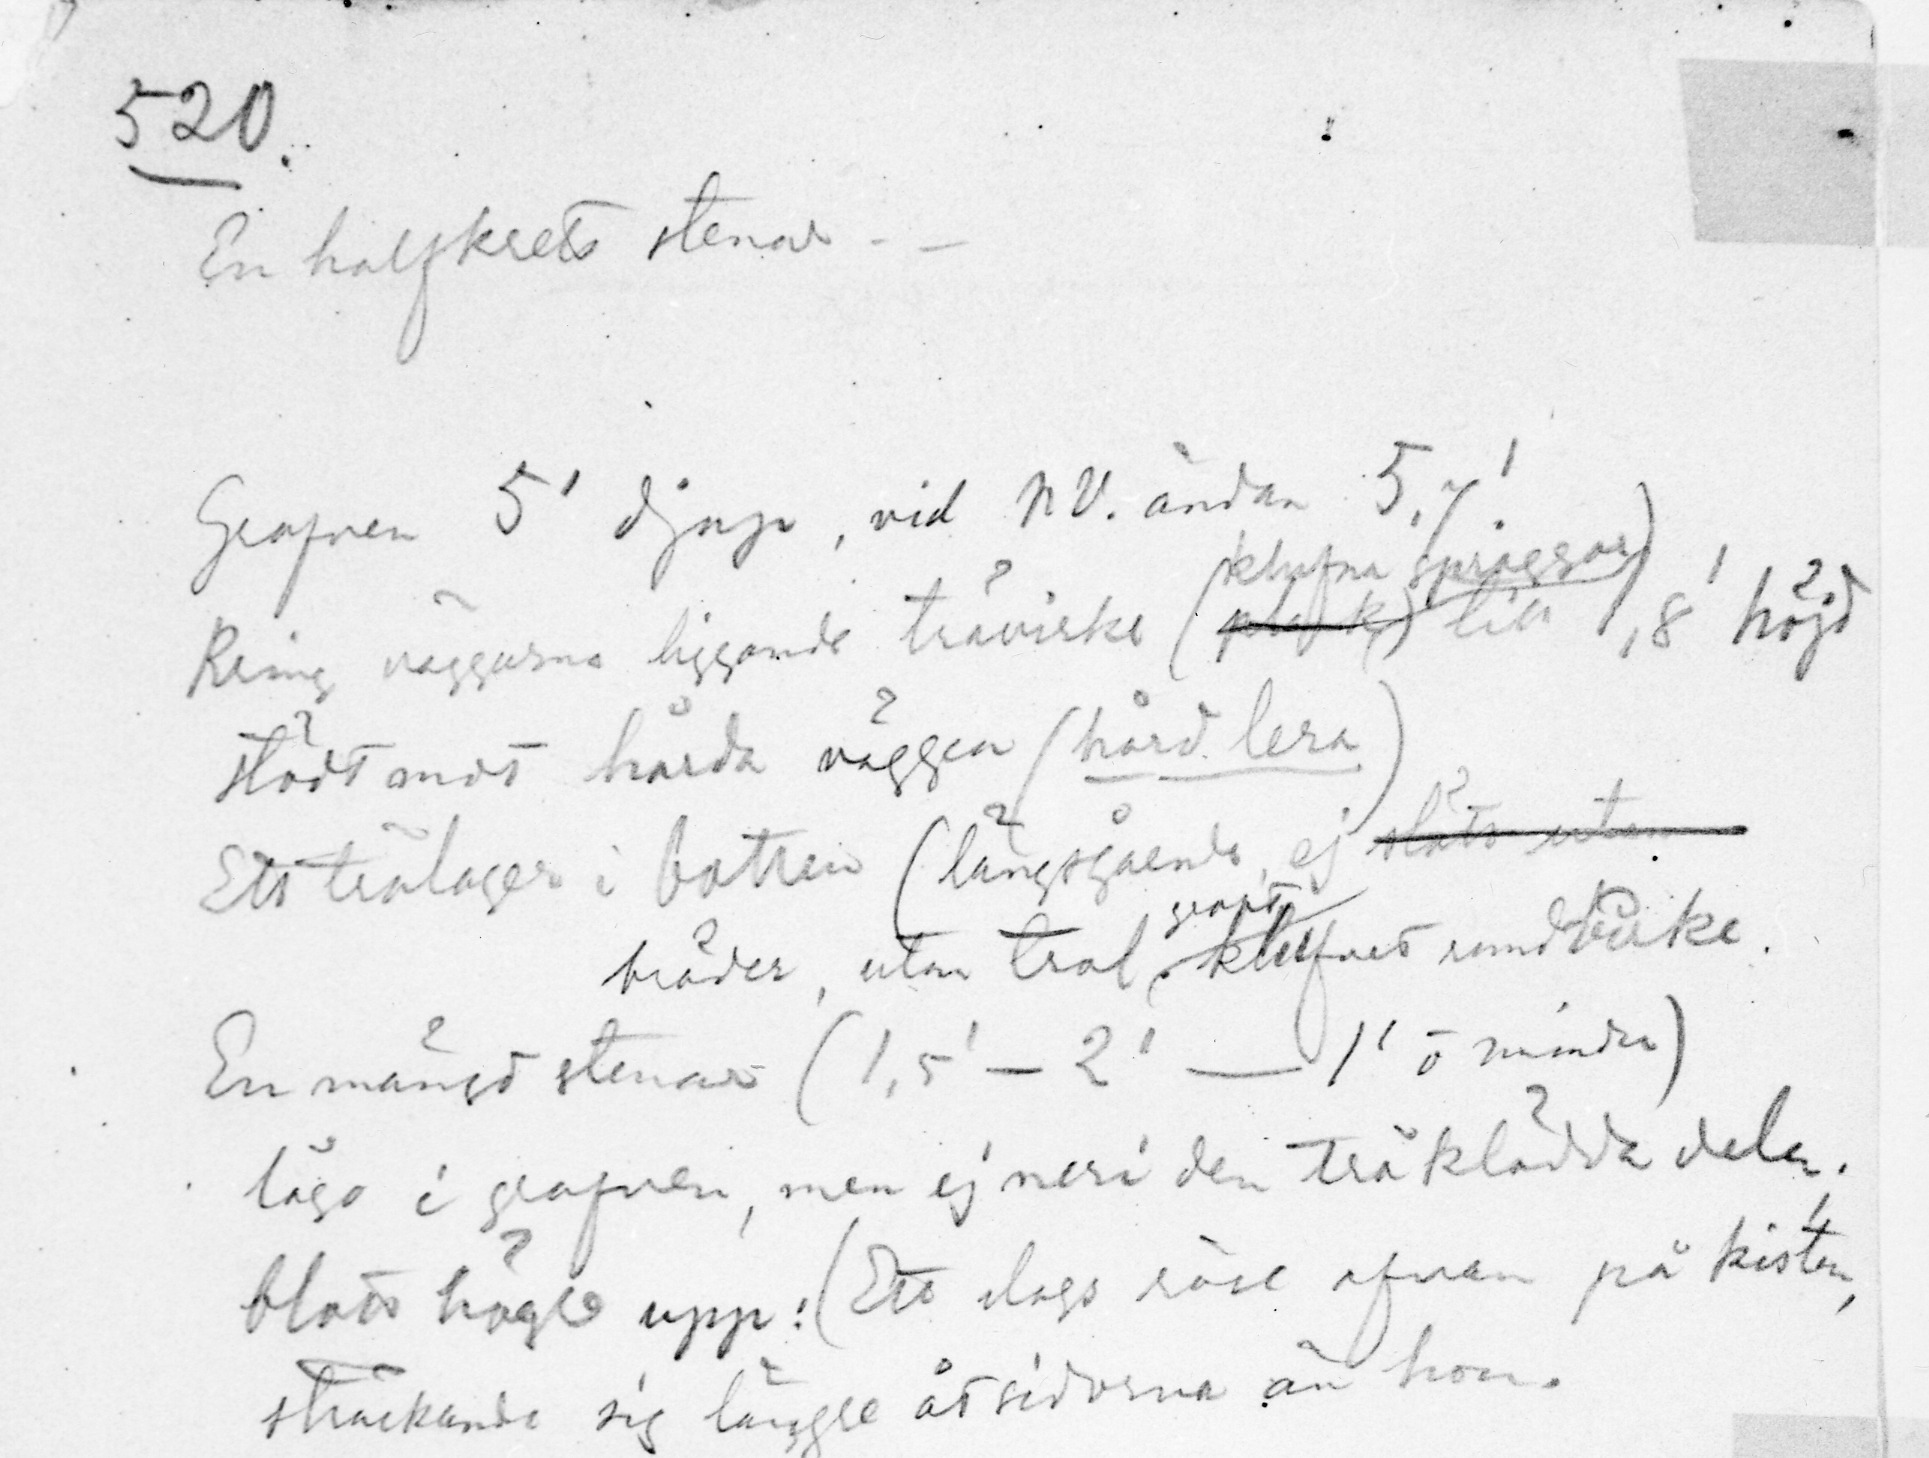 520.
En halfkrets stenar - -
Grafven 5' djup, vid NV. ändan 5,7'.
klufna spraggar)
Kring väggarna liggande trävirke (plank) till 1,8' höjd
stödt mot hårda väggen (hård lera)
Ett trälager i botten (längsgående, ej släta utan
groft
bräder, utan trol. klufvet rundvirke.
En mängd stenar (1,5' — 2' — 1' o mindre)
lågo i grafven, men ej neri den träklädda delen,
blott högre upp: (Ett slags röse ofvan på kistan,
sträckande sig längre åt sidorna än hon.